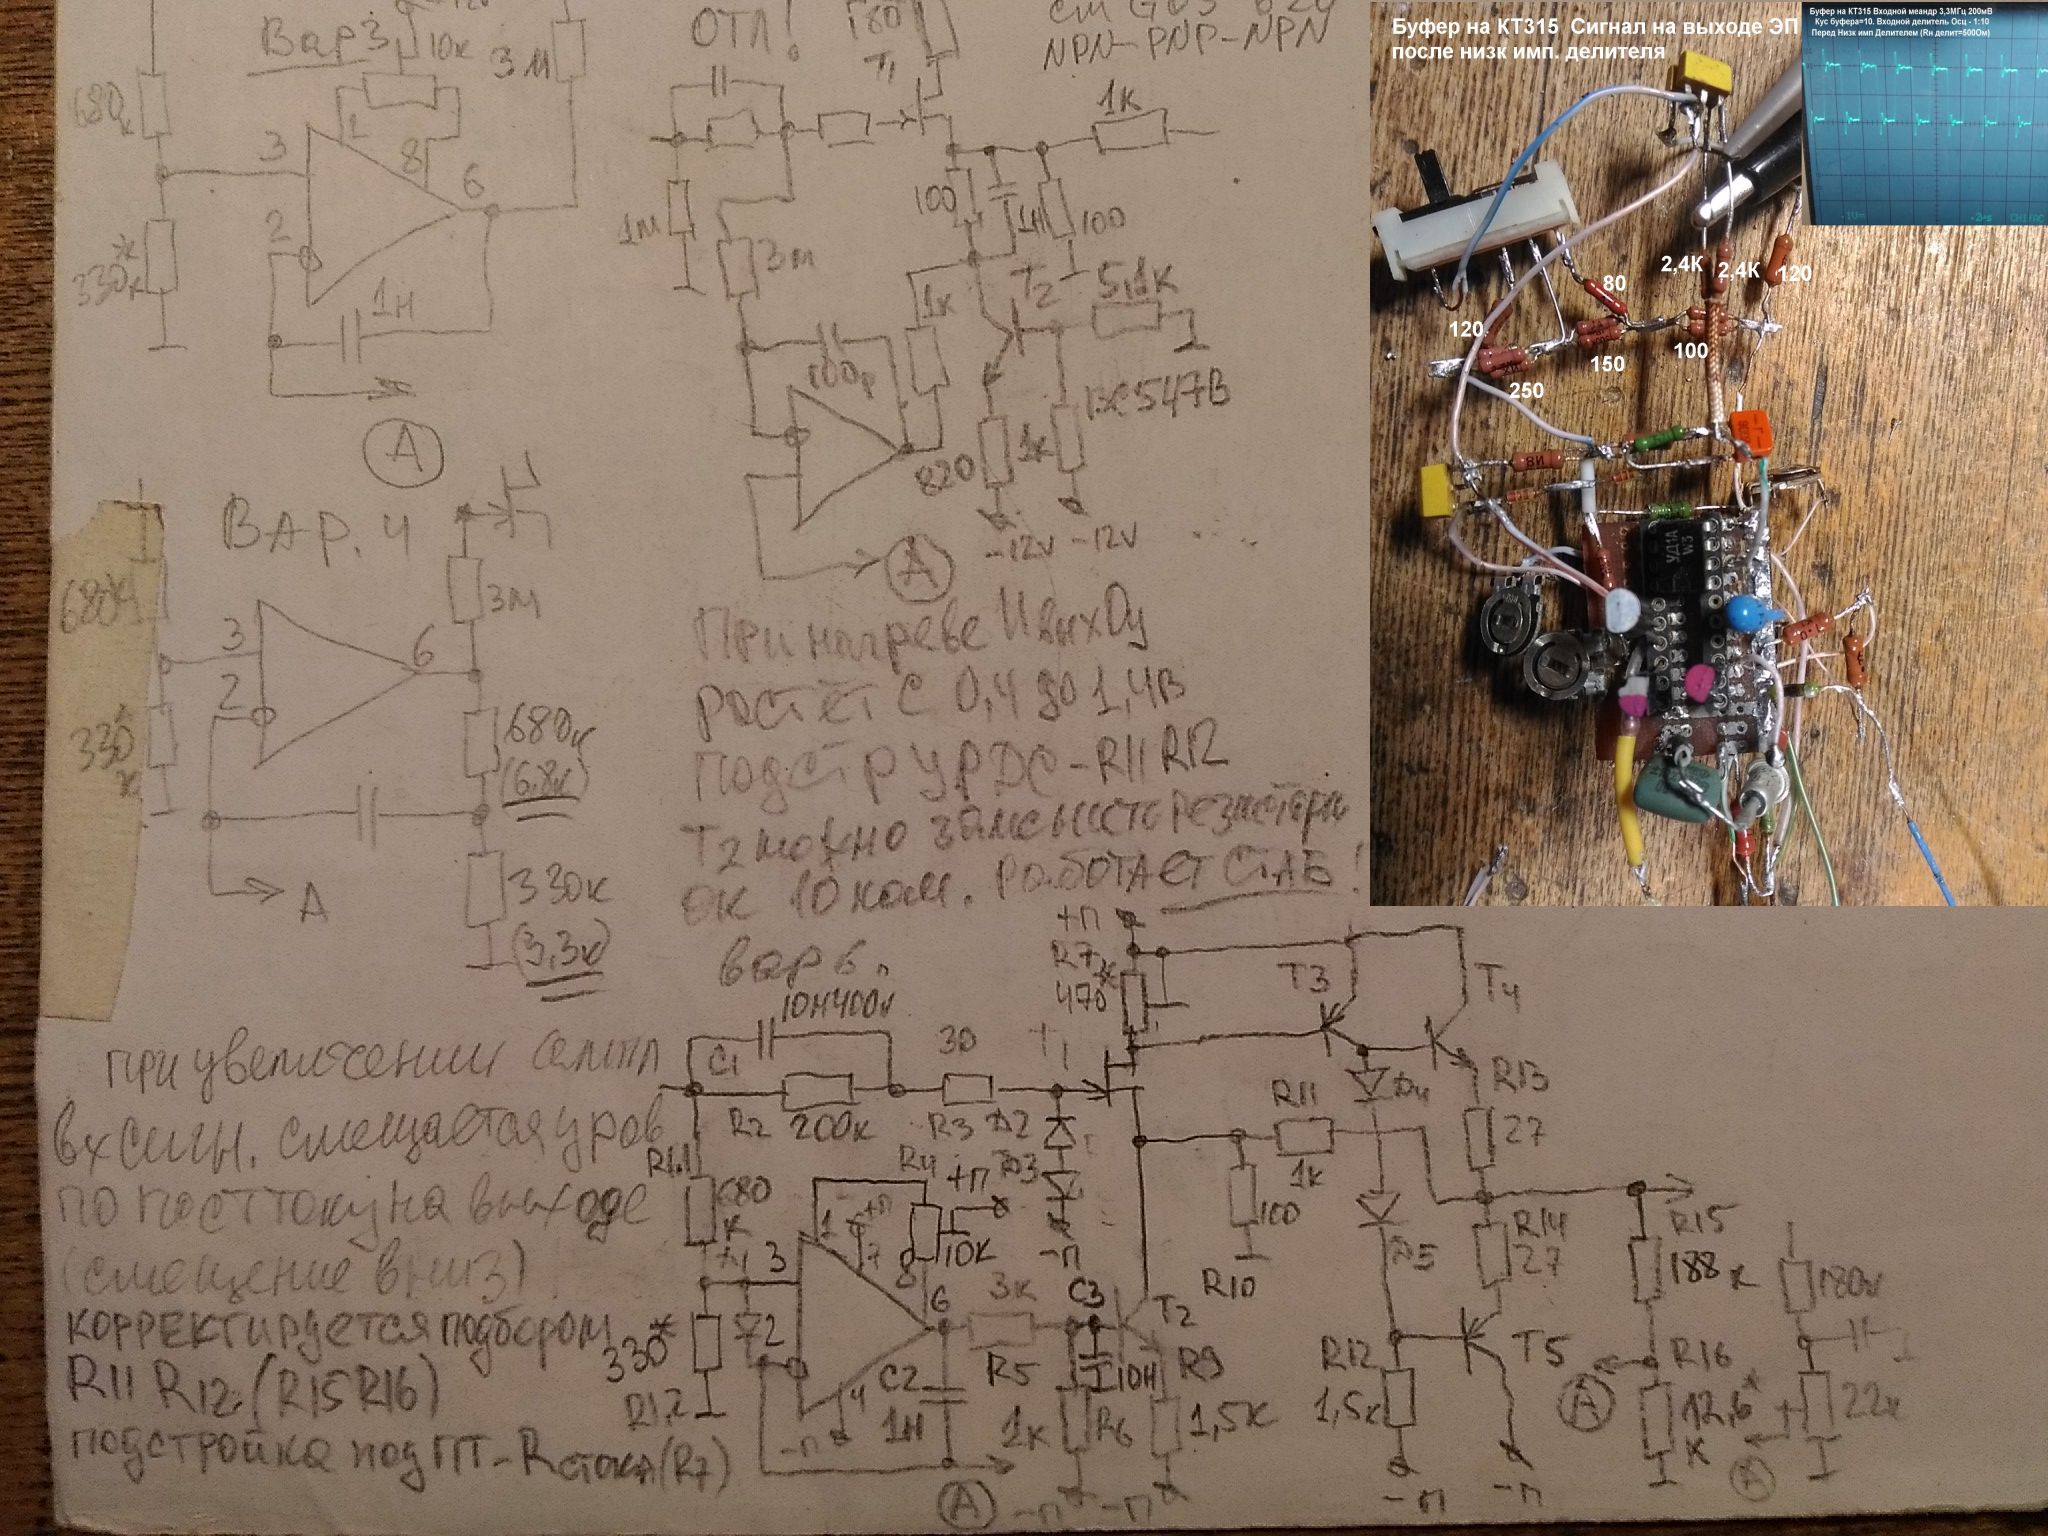 Вар 3
10к
3М
680
к
3
1
8
6
2
330к
*
1н
А
ОТЛ!
Т1
NPN-PNP-NPN
1к
1М
3м
100
1Н
100
Т2
5,1к
1к
100р
BC547B
820
1к
-12v
-12v
А
ВАР. 4
680к
3
2
6
3М
330
к
680к
(6,8к)
330к
(3,3к)
А
При нагреве UвыхОу
ростёт с 0,4 до 1,4в
подстр УРДС-R11 R12
Т2 можно заменить резистором
ок 10 ком. работает СТАБ!
вар 6.
10Н400v
при увеличении
вх сигн. смещается уров
по посттоку на выходе
(смещение вниз)
корректируется подбором
R11 R12. (R15 R16)
подстройка под ПТ-Rстока (R7)
С1
R2
200к
30
R3
Д2
Д3
-П
Т1
+П
R7
*
470
Т3
Т4
Д4
R11
1к
R13
27
100
R10
Д5
R14
27
R15
188к
R16
12,6
*
к
А
180к
22к
А
R1.1
680
к
330
*
R1.2
3
2
1
+П
7
8
6
4
-П
R4
+П
10К
3к
R5
С2
1Н
С3
10Н
Т2
1к
R6
R9
1,5к
-П
-П
А
R12
1,5к
Т5
-П
-П
Буфер на КТ315 Сигнал на выходе ЭП
после низк имп. делителя
Буфер на КТ315 Входной меандр 3,3МГц 200мВ
Кус буфера=10. Входной делитель Осц - 1:10
Перед Низк имп Делителем (Rн делит=500Ом)
80
2,4К
2,4К
120
120
150
100
250
УД1А
W3